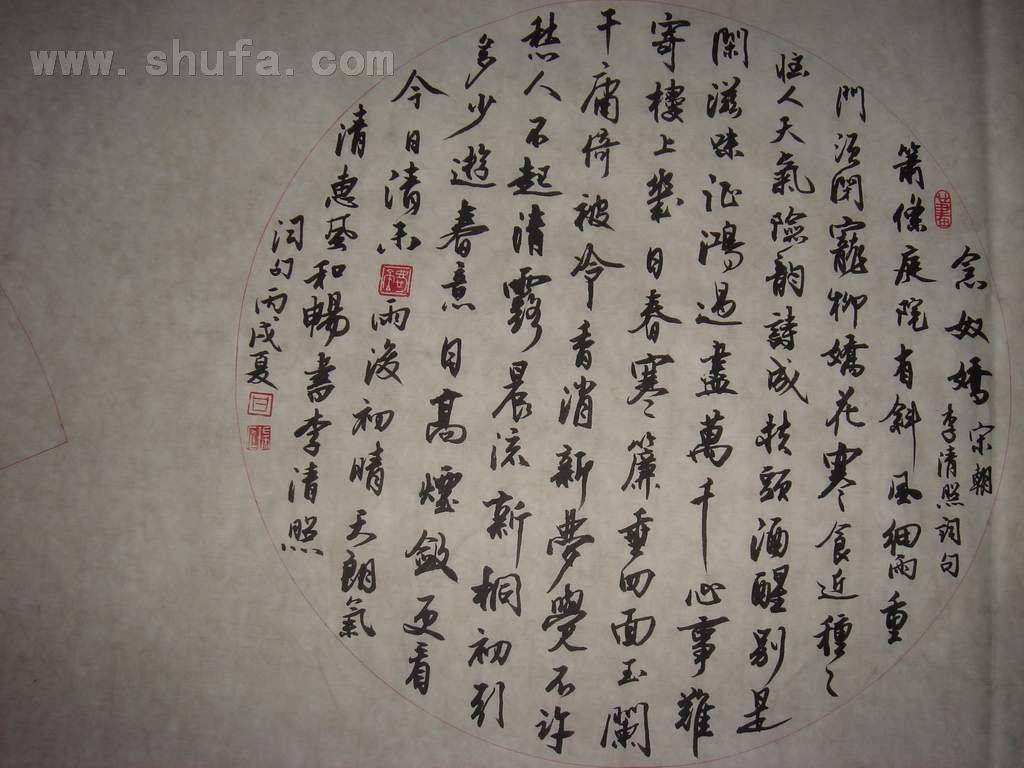 www.shufa.com
念奴嬌 宋朝
李清照詞句
蕭條庭院有斜風細雨重
門須閉寵柳嬌花寒々食近種々
惱人天氣險韵詩成扶頭酒醒別是
閑滋味征鴻過盡萬千心事難
寄樓上幾日春寒々簾垂四面玉闌
干慵倚被冷香消新夢覺不許
愁人不起清露晨流新桐初引
多少遊春意日高煙斂更看
今日清未雨後初晴天朗氣
清惠風和暢書李清照
詞句丙戌夏